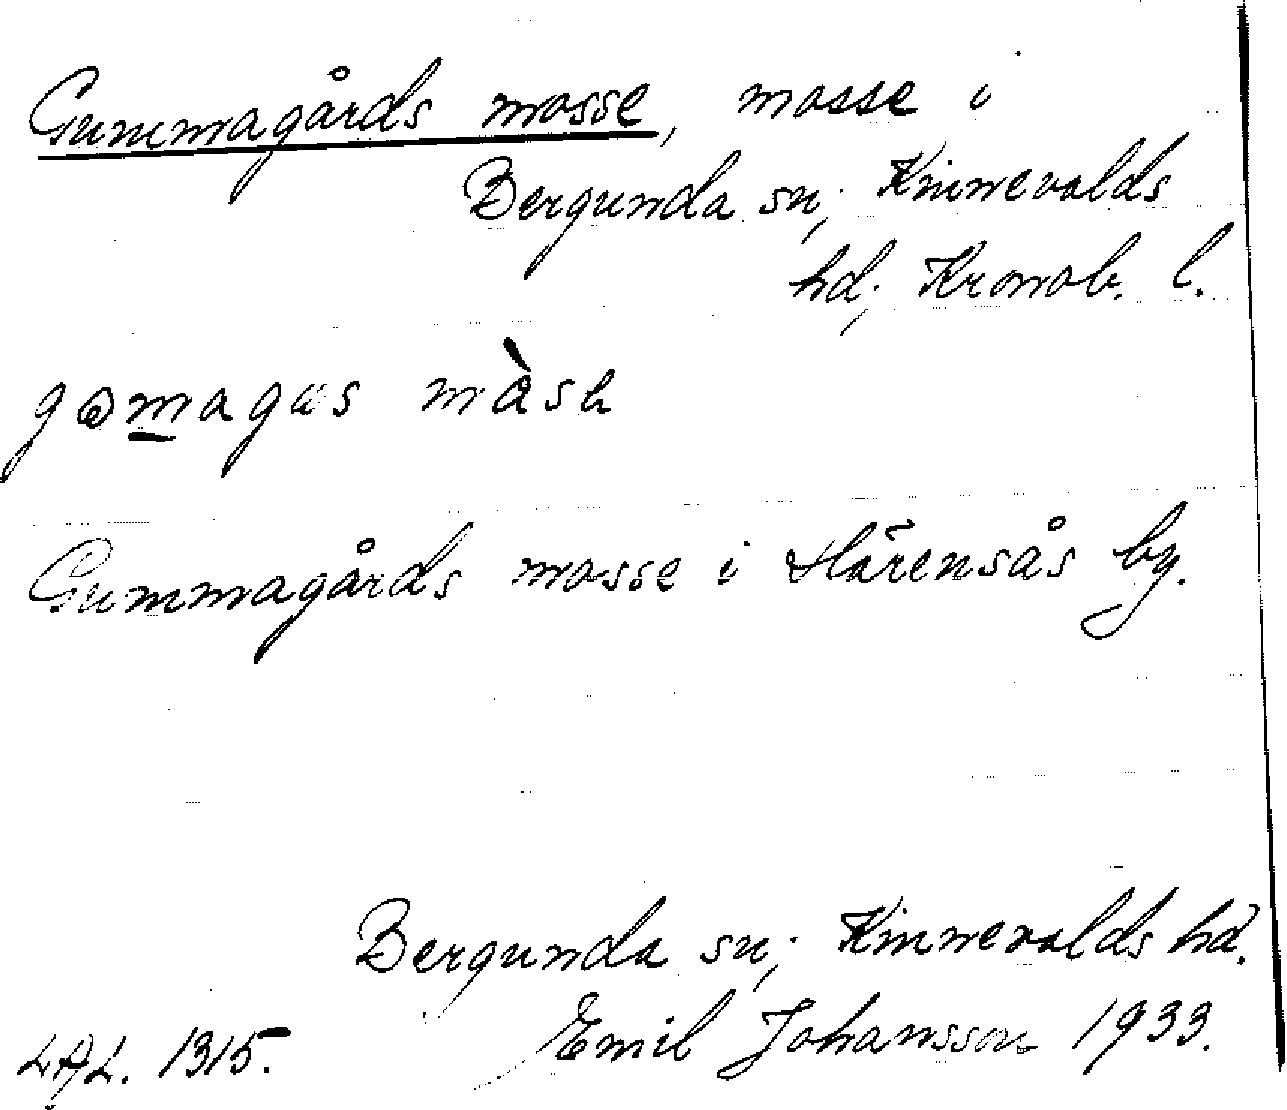 Gummagårds mosse, mosse i
Bergunda sn, Kinnevalds
hd, Kronob. l.
Gummagårds mosse i Härensås by.
Bergunda sn, Kinnevalds hd.
LAL. 1315. Emil Johansson 1933.